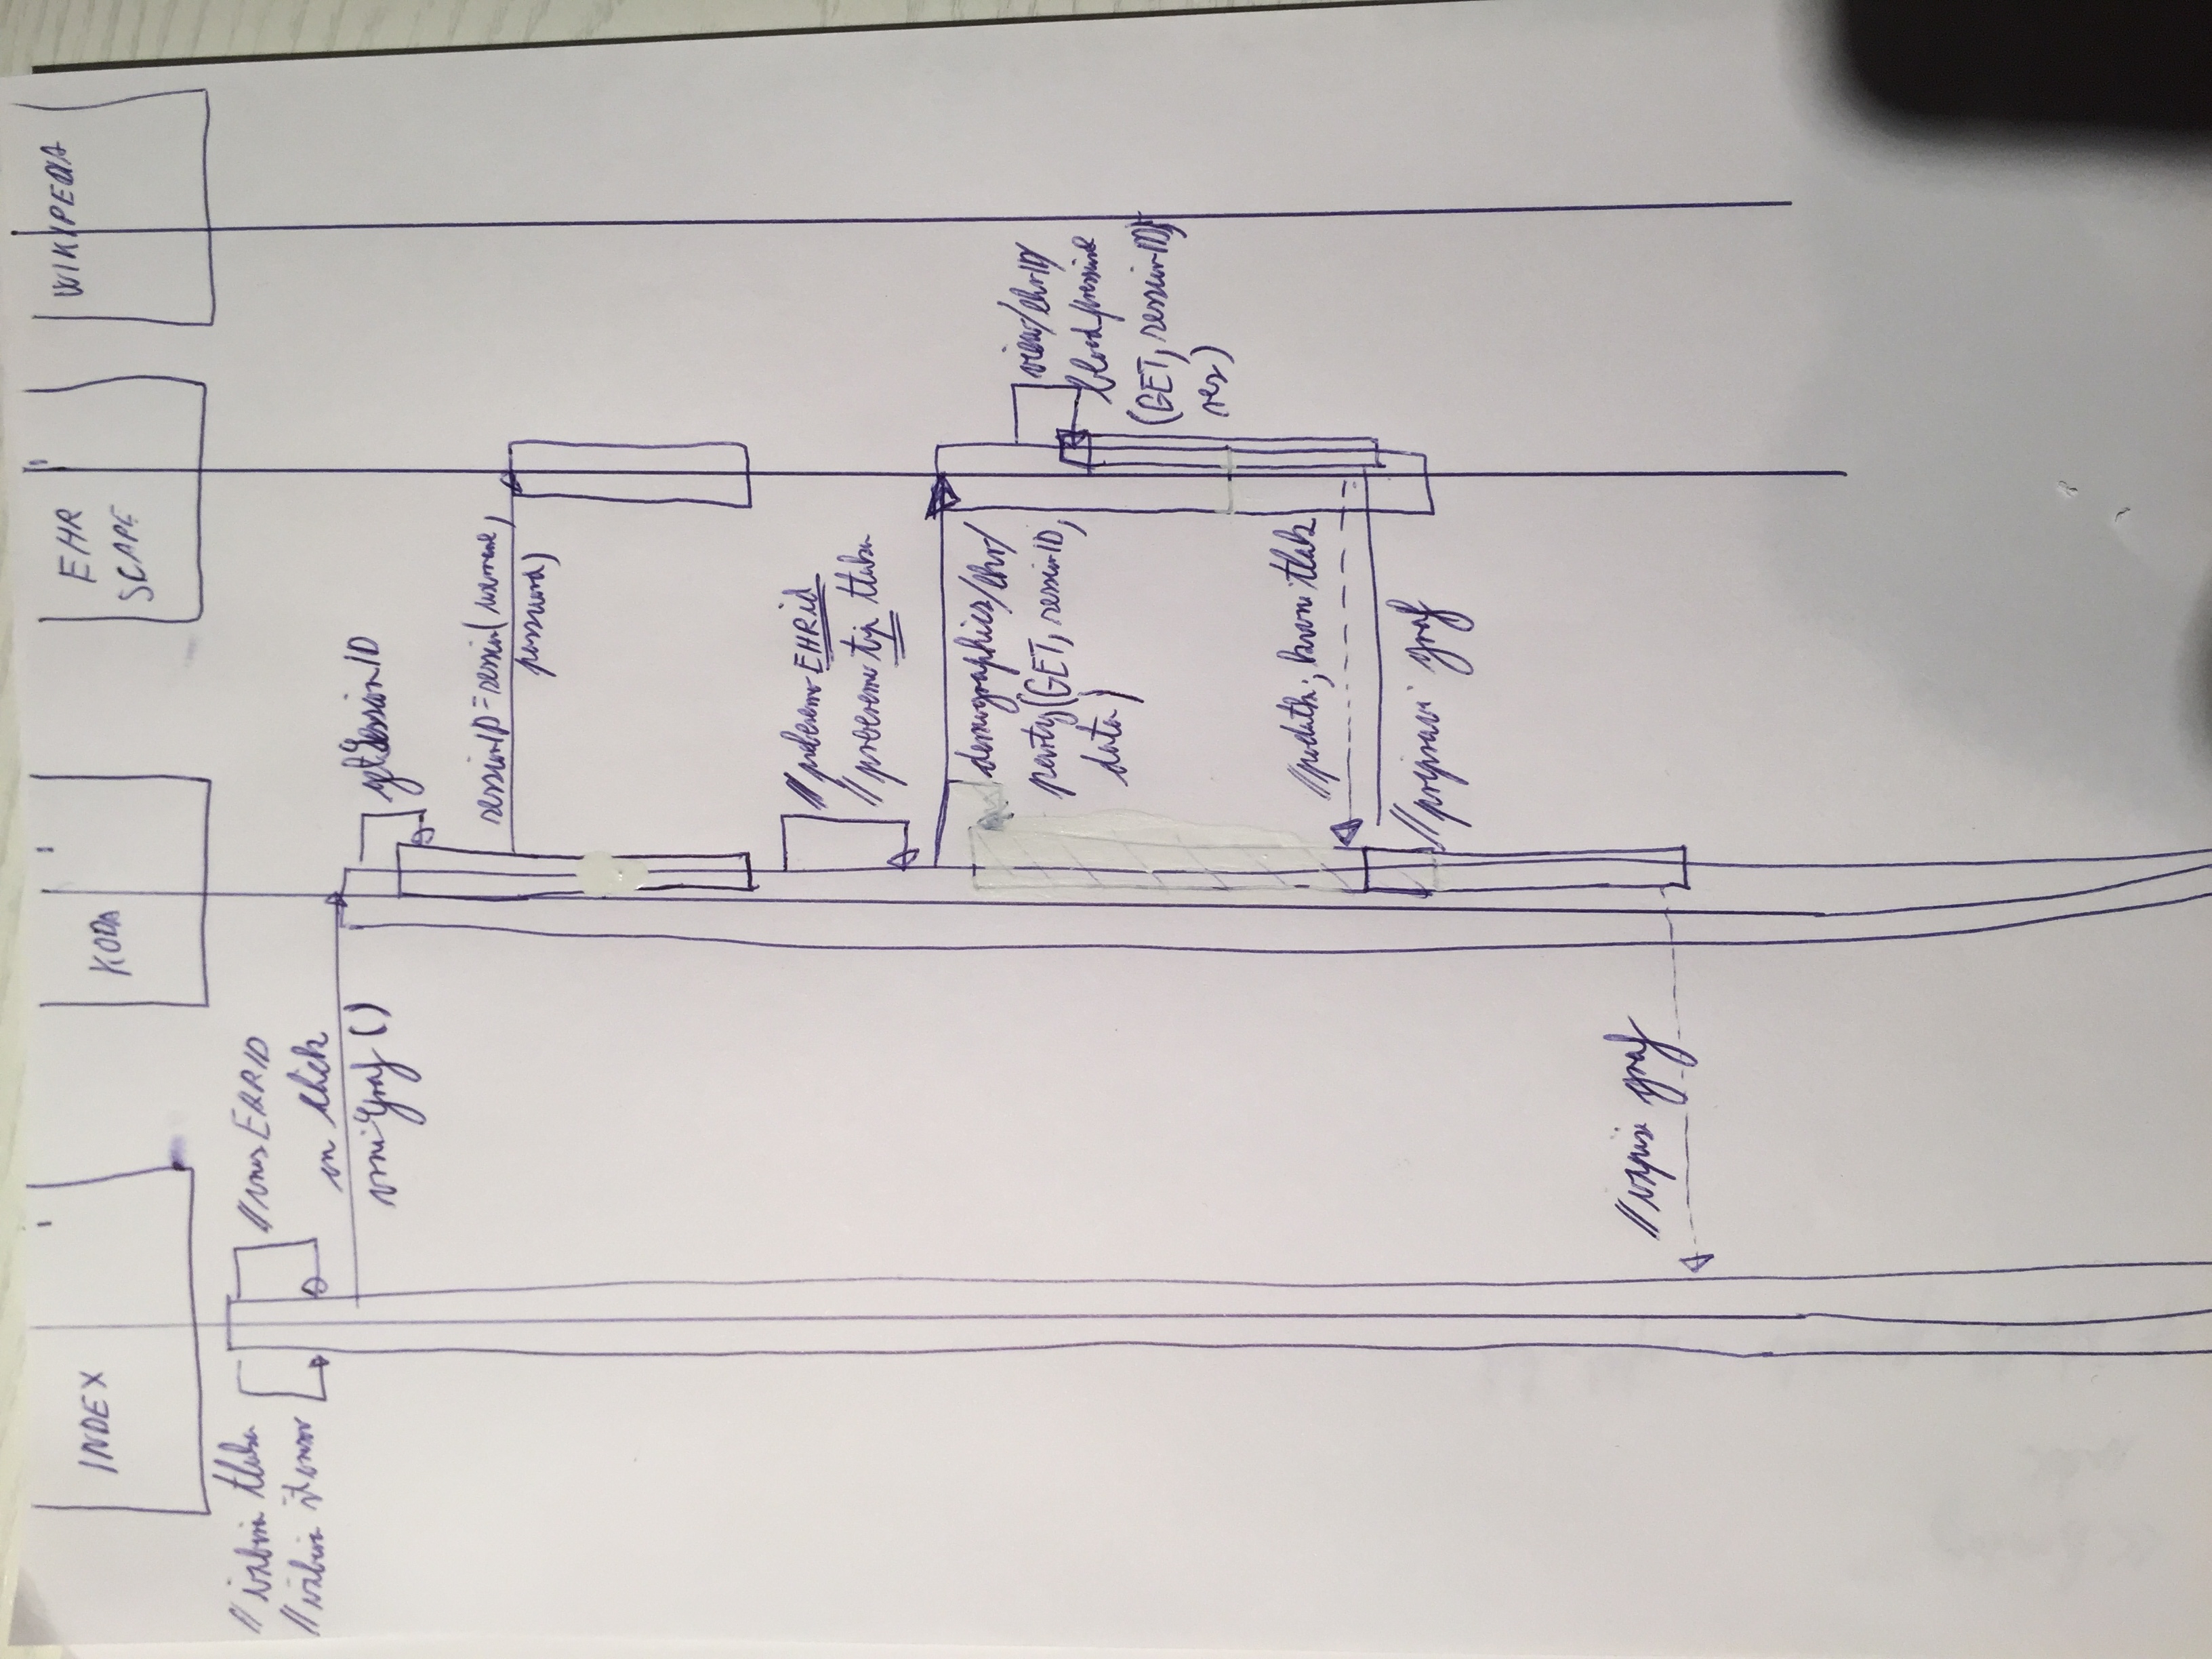 INDEX
KODA
EHR
SCAPE
WIKIPEDIA
// izbira tlaka
// izbira
// vnos EHRID
on click
vrniGraf ()
getSessionID
sessionID = session( username,
password)
// preberemo EHRid
// preberemo tip tlaka
demographics/ehr/
party(GET, sessionID,
data)
view/ehrID/
blood_pressure
(GET, sessionID,
res)
//podatki, krvni tlak
//pripravi graf
//izpiše graf